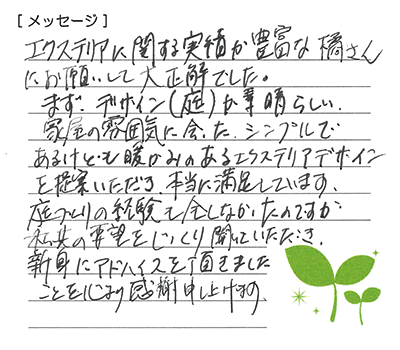 [メッセージ]
エクステリアに関する実績が豊富な橘さん
にお願いして大正解でした。
まず、デザイン(庭)が素晴らしい、
家屋の雰囲気に合った、シンプルで
あるけども暖かみのあるエクステリアデザイン
を提案いただき、本当に満足しています。
庭づくりの経験も全しなかったのですが
私共の要望をじっくり聞いていただき、
親身にアドバイスを頂きました
ことを心より感謝申し上げます。